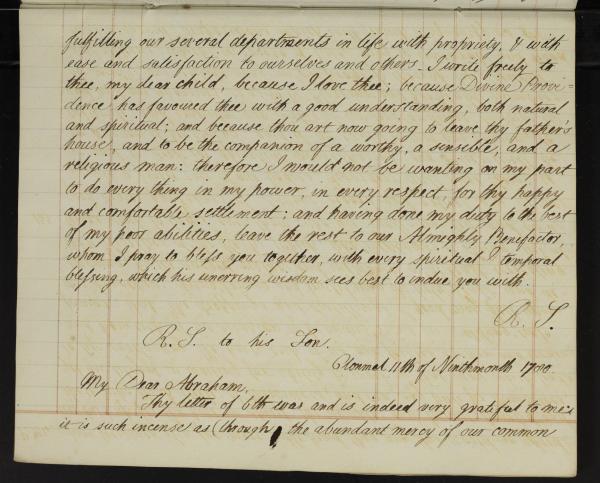 fulfilling our several departments in life with propriety, & with
ease and satisfaction to ourselves and others. I write freely to
thee, my dear child, because I love thee; because Divine Provi=
dence has favoured thee with a good understanding, both natural
and spiritual; and because thou art now going to leave thy father's
house, and to be the companion of a worthy, a sensible, and a
religious man: therefore I would not be wanting on my part
to do every thing in my power, in every respect, for thy happy
and comfortable settlement: and having done my duty to the best
of my poor abilities, leave the rest to our Almighty Benefactor,
whom I pray to bless you together, with every spiritual & temporal
blessing, which his unerring wisdom sees best to indue you with.
R. S.
R. S. to his Son.
Clonmel 11th of Ninthmonth
My Dear Abraham,
Thy letter of 6th was and is indeed very grateful to me:
it is such incense as (through the abundant mercy of our common